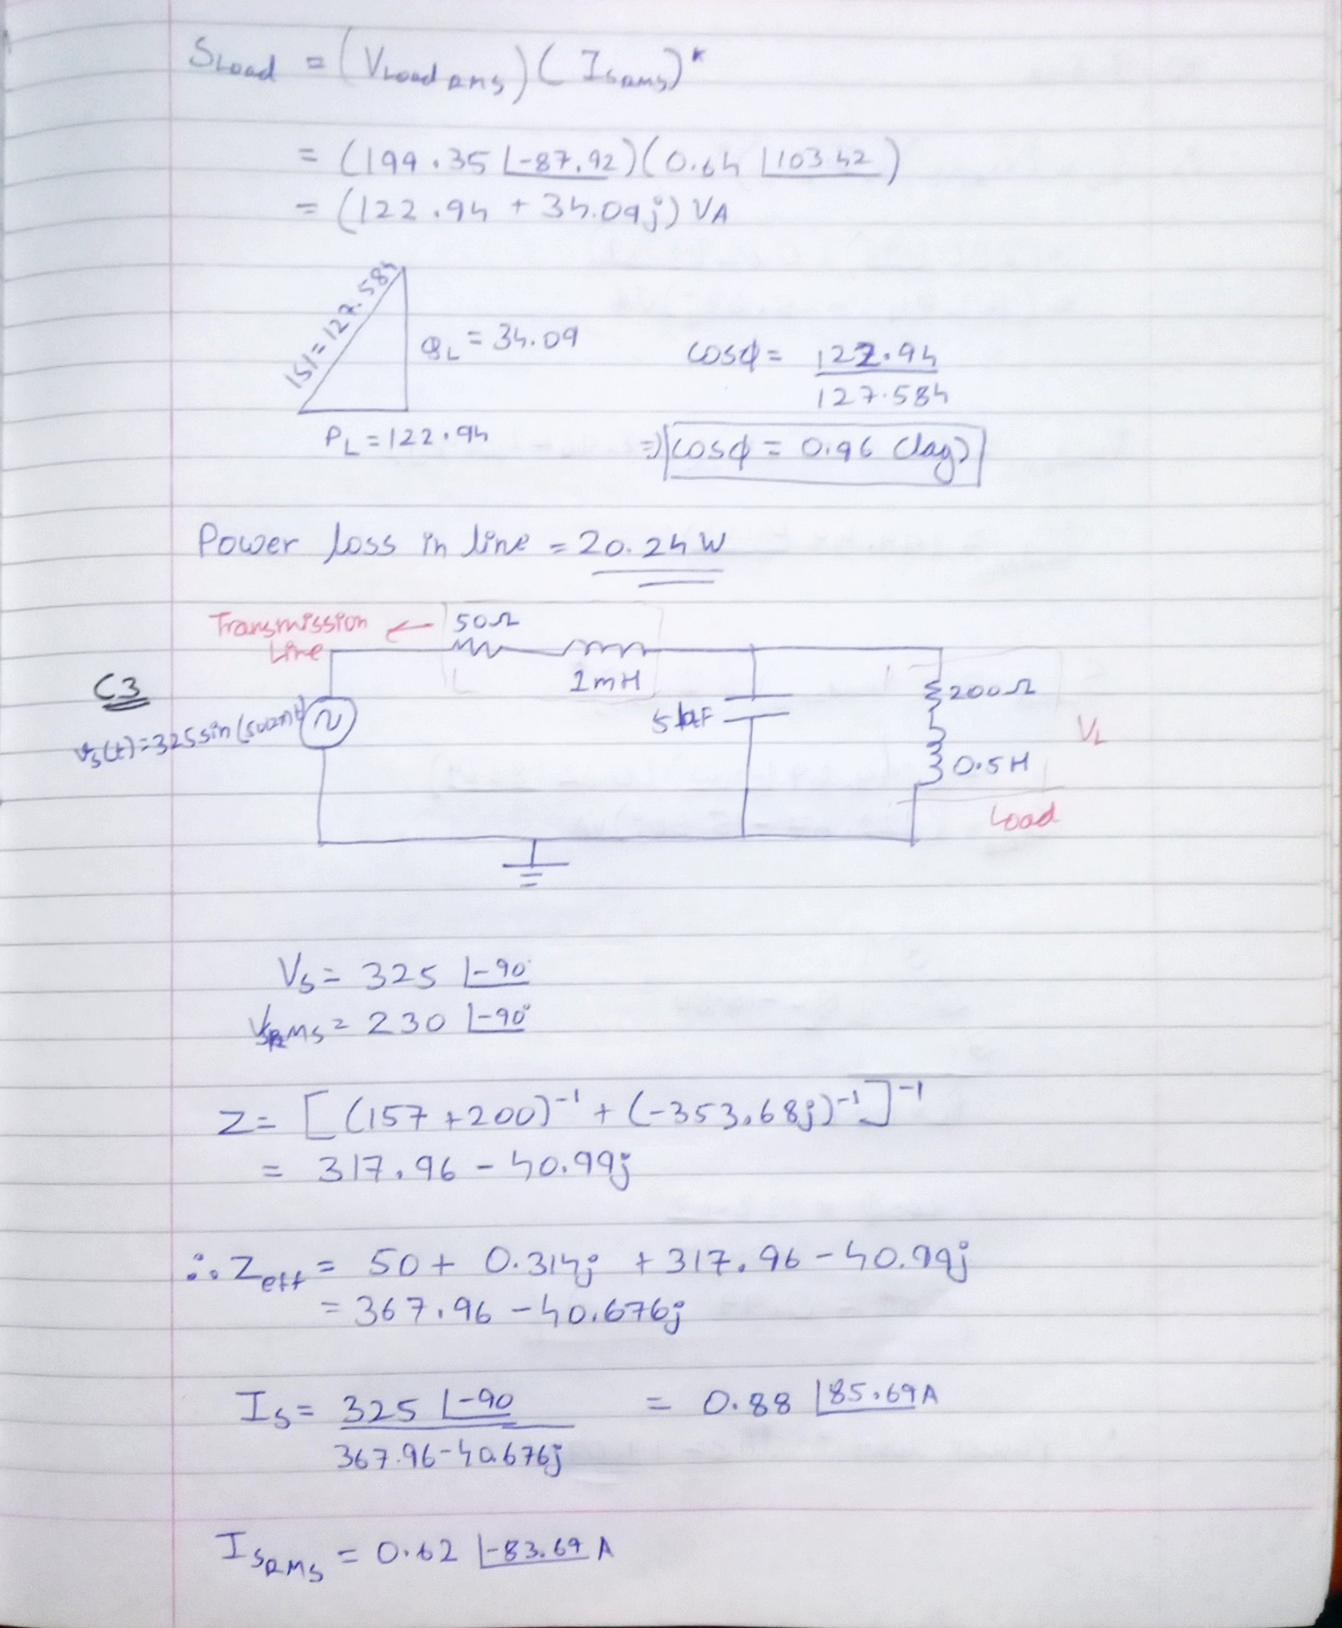 S_Load = (V_Load RMS)(I_S RMS)*
= (199.35 ∠-87.92)(0.64 ∠103.42)
= (122.94 + 34.09j) VA
|S| = 127.584
Q_L = 34.09
P_L = 122.94
cosϕ = 122.94 / 127.584
⇒ cosϕ = 0.96 (lag)
Power loss in line = 20.24 W
Transmission Line ← 50Ω
1mH
C3
v_s(t)=325sin(502πt)
5μF
200Ω
0.5H
V_L
Load
V_S = 325 ∠-90°
V_SRMS = 230 ∠-90°
Z = [(157+200)⁻¹ + (-353.68j)⁻¹]⁻¹
= 317.96 - 40.99j
∴ Z_eff = 50 + 0.314j + 317.96 - 40.99j
= 367.96 - 40.676j
I_S = 325 ∠-90 / 367.96-40.676j = 0.88 ∠85.69 A
I_SRMS = 0.62 ∠-83.69 A